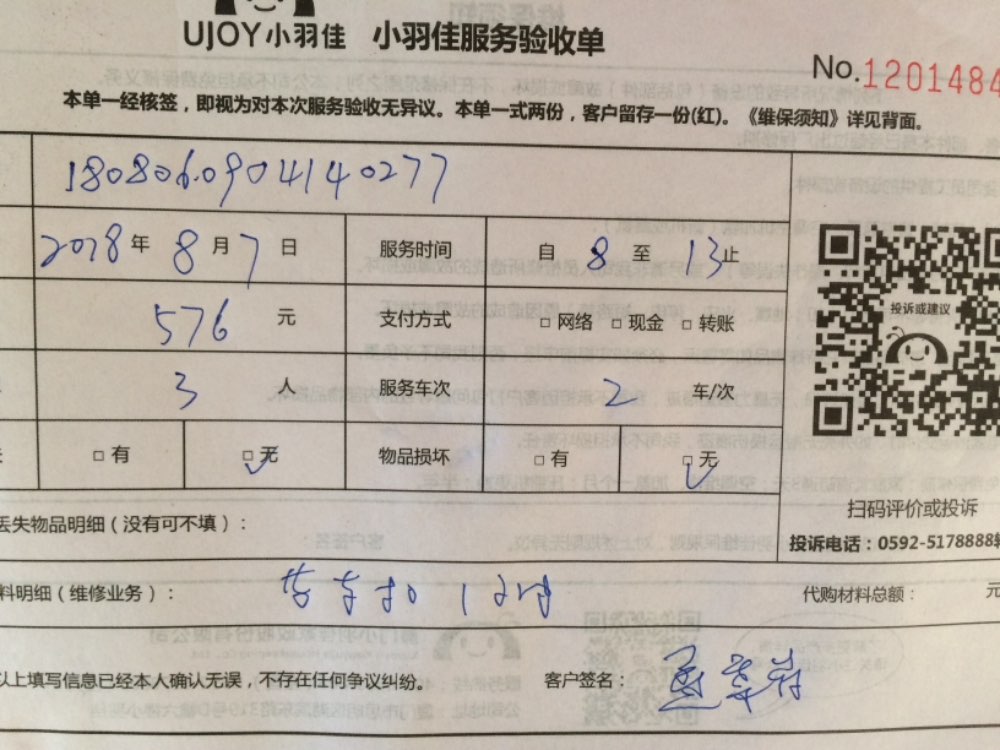 UJOY小羽佳 小羽佳服务验收单
No.1201484
本单一经核签，即视为对本次服务验收无异议。本单一式两份，客户留存一份(红)。《维保须知》详见背面。
1808060904140277
2018年 8月7日 服务时间 自 8 至 13止
576 元 支付方式 □网络 □现金 □转账
3 人 服务车次 2 车/次
□有 □无 物品损坏 □有 □无
投诉或建议
扫码评价或投诉
投诉电话：0592-5178888转
丢失物品明细（没有可不填）：
料明细（维修业务）： 代购材料总额： 元
以上填写信息已经本人确认无误，不存在任何争议纠纷。 客户签名：